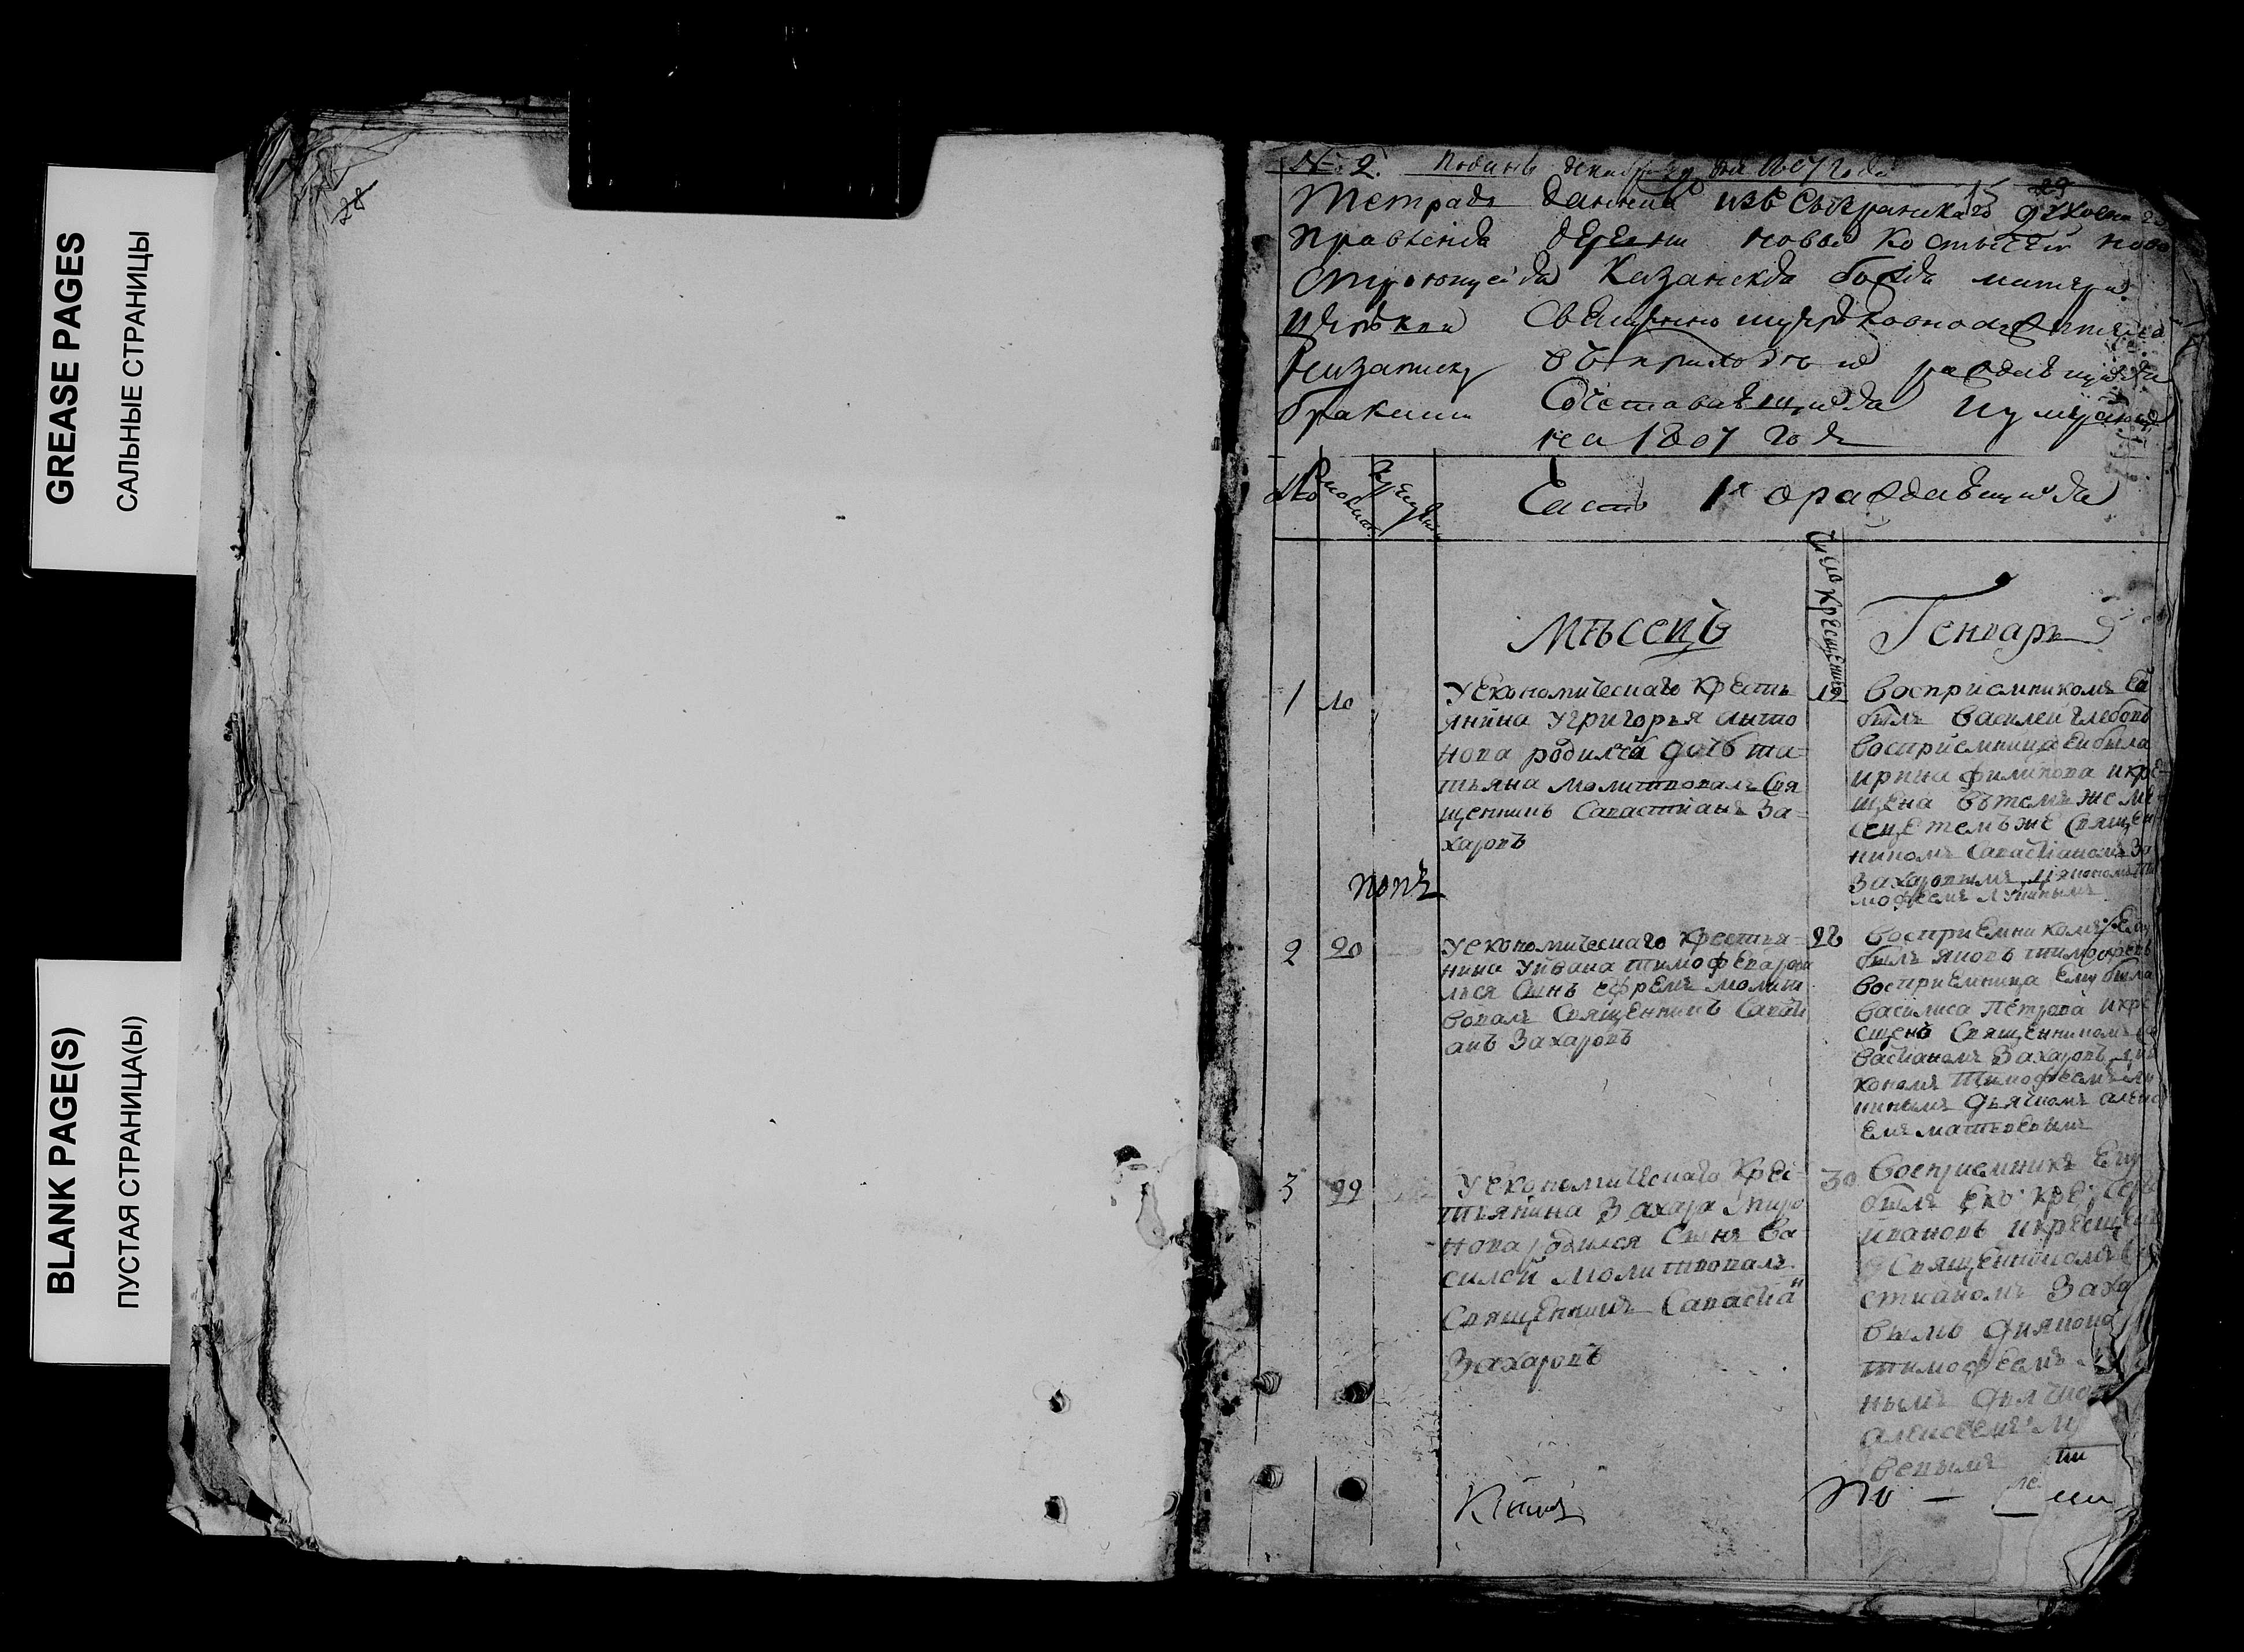 GREASE PAGES
САЛЬНЫЕ СТРАНИЦЫ
BLANK PAGE(S)
ПУСТАЯ СТРАНИЦА(Ы)
28
№ 2. 1807 года
15 29
Тетрадь данная изъ Сызранскаго духовн
правленія деревни новой Костычей ново
строющейся Казанскія божія матери
церкви священно и церковнослужителей
на записку въ приходѣ
бракомъ и умершихъ
на 1807 годъ
№
Часть 1я о раждающихся
число крещенія
мѣсецъ
Генварь
1
10
У Економическаго Кресть
янина у григорья анто
нова родилса дочь та=
тьяна молитвовалъ Свя
щенникъ Савастианъ За=
харовъ
19
восприемникомъ ей
былъ василей глебовъ
восприемница ей была
ирина филипова и кре=
щена в темъ же ме
сеце темъ же Священ
никомъ Савастианомъ За
Захаровымъ
попъ
2
20
У економическаго крестья=
нина у ивана тимофева роди
лься сынъ ефремъ молит
вовалъ Священникъ Савасти
анъ Захаровъ
28
восприемникомъ Ему
былъ яковъ тимофеевъ
восприемница Ему была
василиса Петрова и кре
щенъ Священникомъ са
вастианомъ Захаровъ дия
кономъ тимофеемъ лу
нинымъ дьячкомъ алексе
емъ матвевымъ
3
22
У економическаго Крес=
тьянина Захара миро
нова родился Сынъ ва
силей молитвовалъ
Священникъ Савастиа
Захаровъ
30
восприемникъ Ему
былъ еко: кре:
ивановъ и крещенъ
Священникомъ
стианомъ Заха
вымъ дияконо
тимофеемъ
нымъ дьячко
алексеемъ
вевымъ
По —